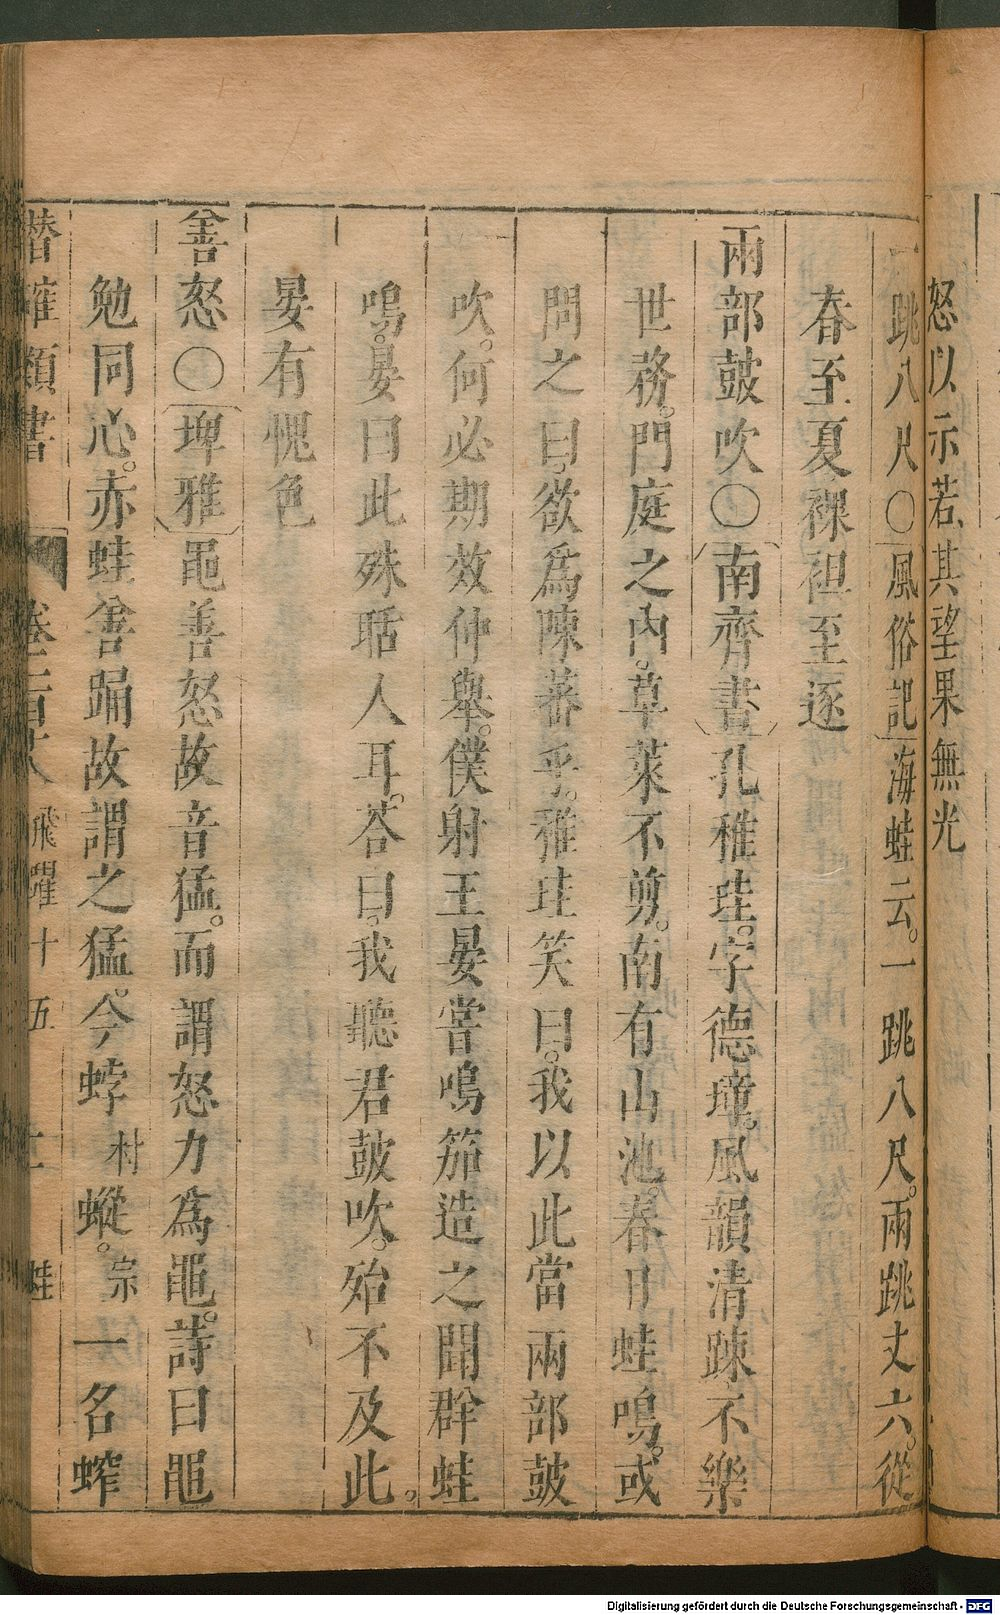 怒以示若其望果無光
一跳八尺〇風俗記海蛙云。一跳八尺。兩跳丈六。從
春至夏裸袒至逐
兩部鼓吹〇南齊書孔稚珪。字德璋。風韻清疎不樂
世務。門庭之內。草萊不剪。南有山池。春日蛙鳴。或
問之曰。欲爲陳蕃乎。稚珪笑曰。我以此當兩部鼓
吹。何必期效仲舉。僕射王晏嘗鳴笳造之聞群蛙
鳴。晏曰此殊聒人耳。荅曰。我聽君鼓吹。殆不及此。
晏有愧色
善怒〇埤雅黽善怒故音猛。而謂怒力爲黽。詩曰黽
勉同心。赤蛙善踊故謂之猛。今蛨村蝬。宗一名蜶
潛確類書 卷一百十八 飛躍十五 十二 蛙
Digitalisierung gefördert durch die Deutsche Forschungsgemeinschaft - DFG